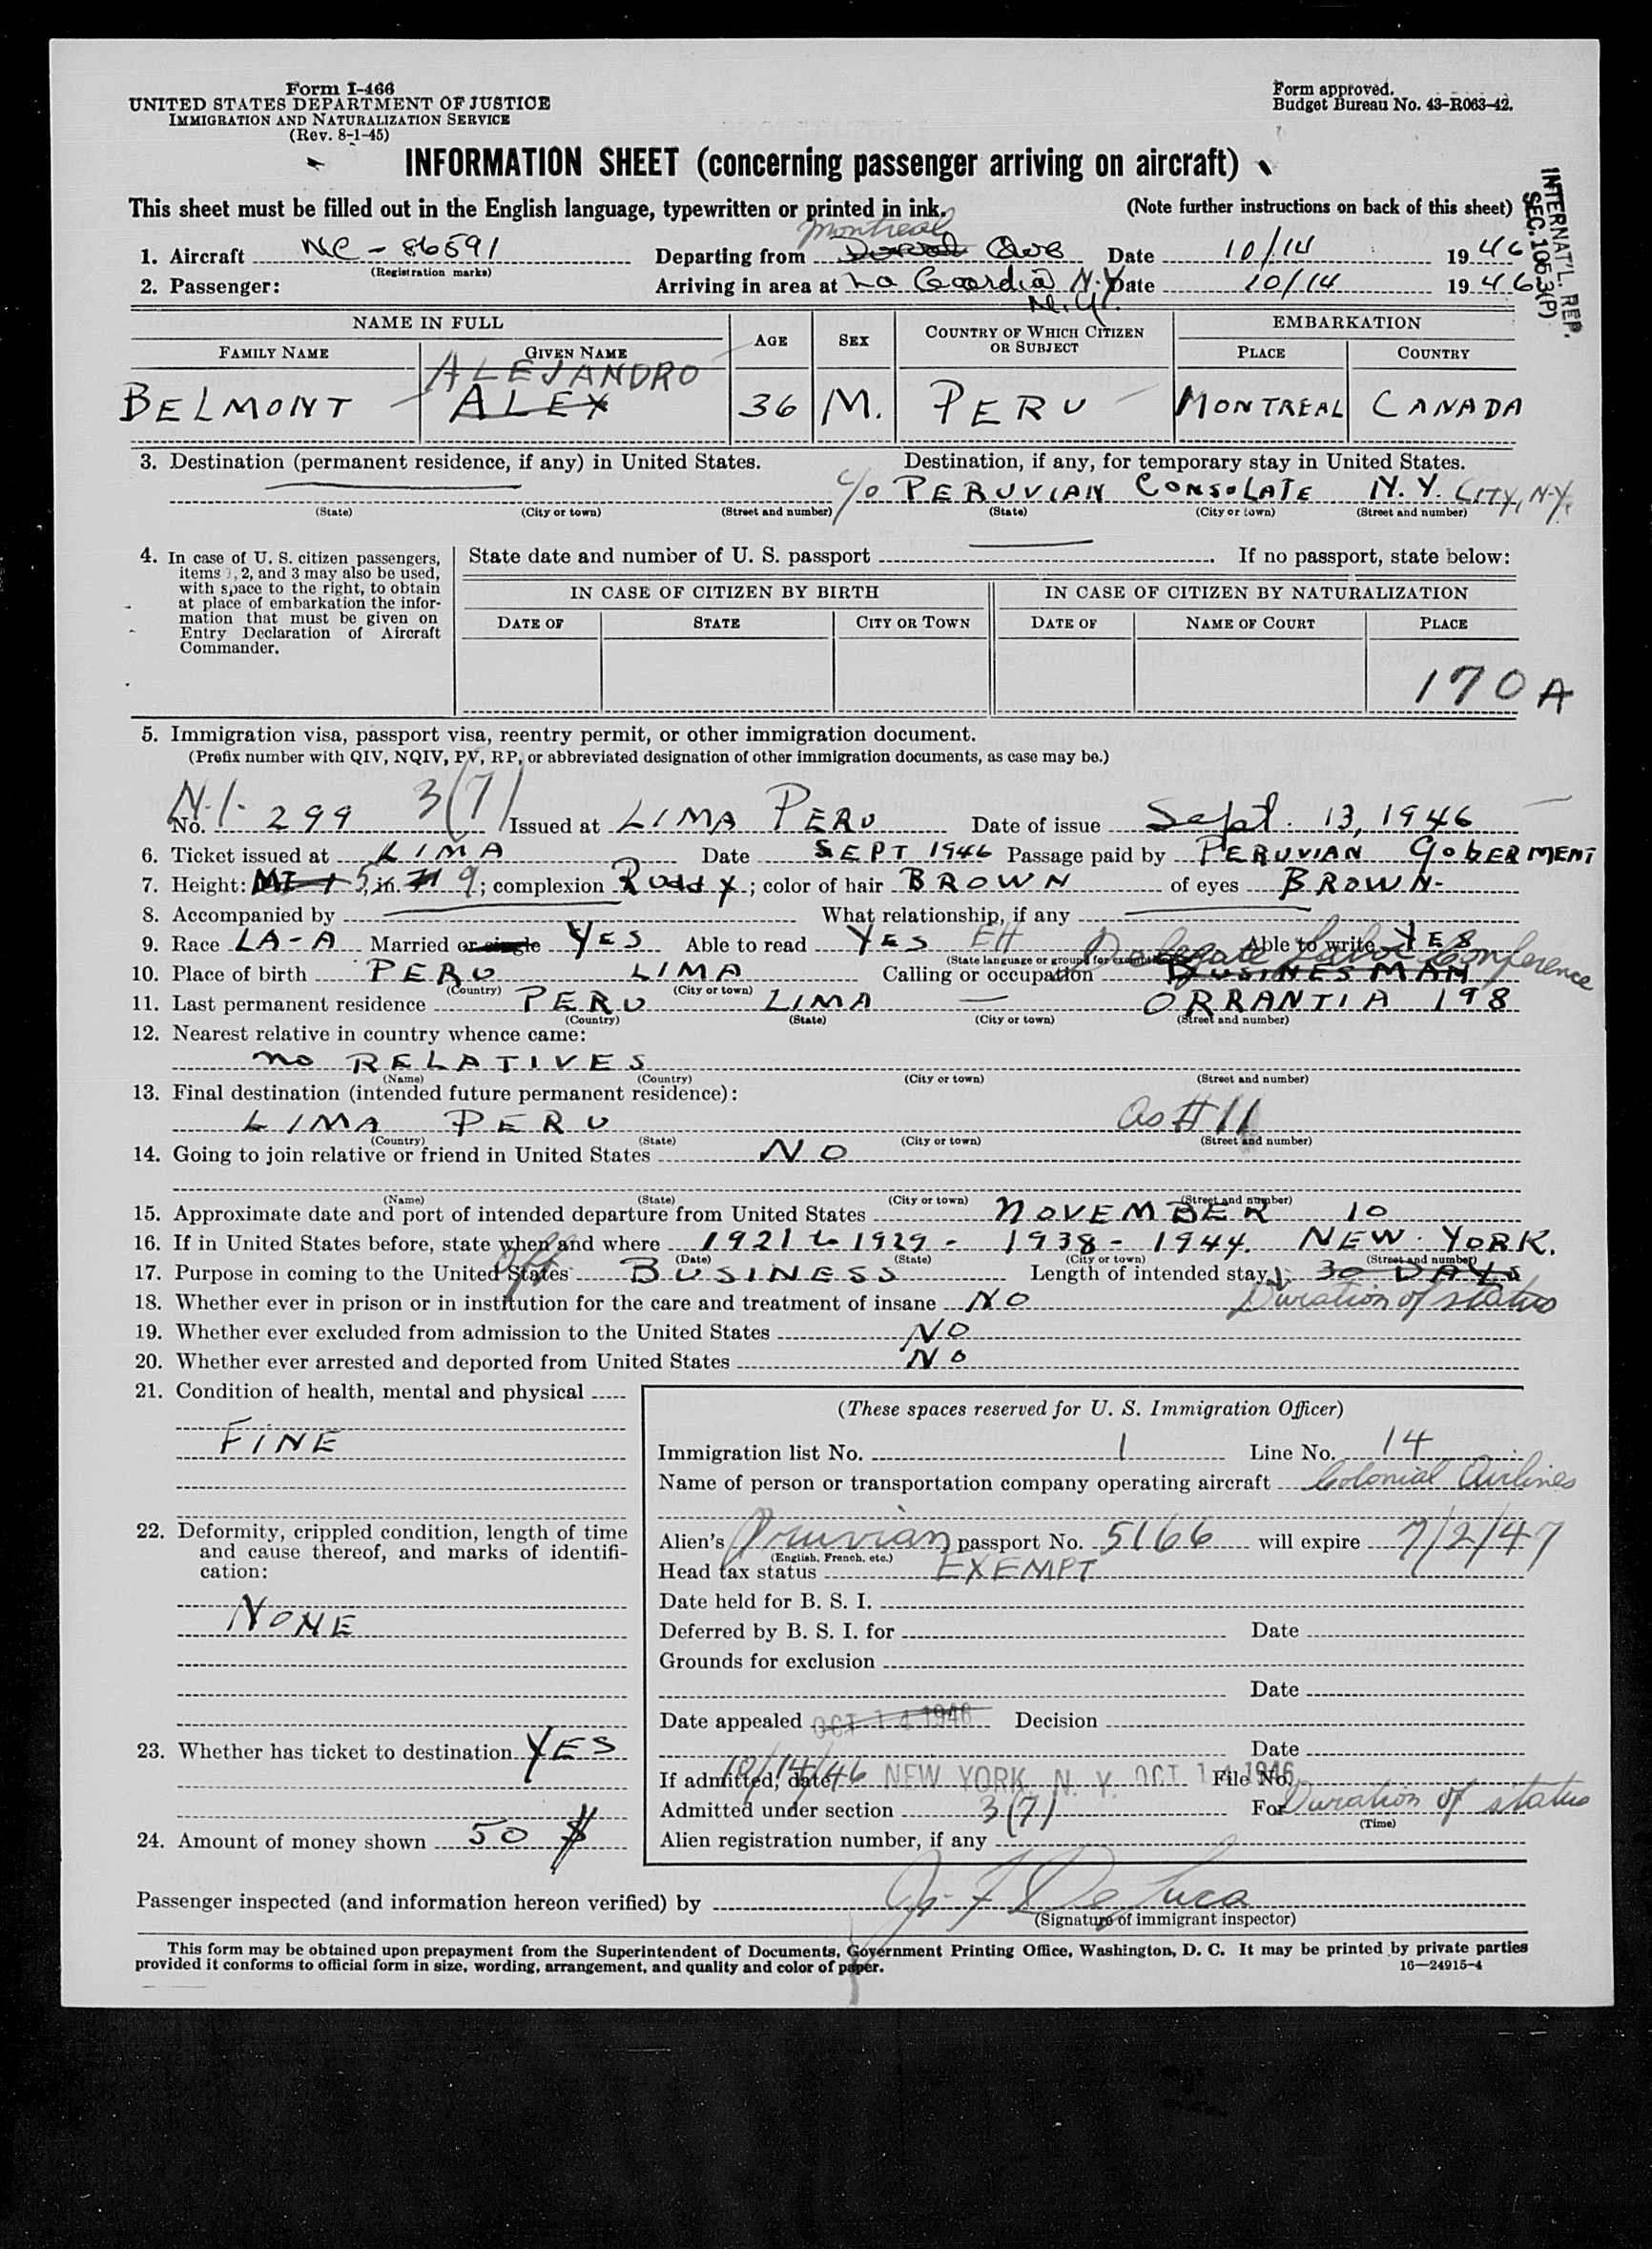 Form I-466
UNITED STATES DEPARTMENT OF JUSTICE
IMMIGRATION AND NATURALIZATION SERVICE
(Rev. 8-1-45)
Form approved.
Budget Bureau No. 43-R063-42.
INFORMATION SHEET (concerning passenger arriving on aircraft)
INTERNAT'L. REP.
SEC. 1053(P)
This sheet must be filled out in the English language, typewritten or printed in ink. (Note further instructions on back of this sheet)
Montreal
1. Aircraft NC-86591 Departing from Dorval Que Date 10/14 1946
(Registration marks)
2. Passenger: Arriving in area at La Guardia N.Y. Date 10/14 1946
N.Y.
NAME IN FULL AGE SEX COUNTRY OF WHICH CITIZEN OR SUBJECT EMBARKATION
FAMILY NAME GIVEN NAME PLACE COUNTRY
ALEJANDRO
BELMONT ALEX 36 M. PERU MONTREAL CANADA
3. Destination (permanent residence, if any) in United States. Destination, if any, for temporary stay in United States.
c/o PERUVIAN CONSOLATE N.Y. CITY, N.Y.
(State) (City or town) (Street and number) (State) (City or town) (Street and number)
4. In case of U. S. citizen passengers, items 1, 2, and 3 may also be used, with space to the right, to obtain at place of embarkation the information that must be given on Entry Declaration of Aircraft Commander.
State date and number of U. S. passport If no passport, state below:
IN CASE OF CITIZEN BY BIRTH IN CASE OF CITIZEN BY NATURALIZATION
DATE OF STATE CITY OR TOWN DATE OF NAME OF COURT PLACE
170 A
5. Immigration visa, passport visa, reentry permit, or other immigration document.
(Prefix number with QIV, NQIV, PV, RP, or abbreviated designation of other immigration documents, as case may be.)
N.I. 3(7)
No. 299 Issued at LIMA PERU Date of issue Sept. 13, 1946
6. Ticket issued at LIMA Date SEPT 1946 Passage paid by PERUVIAN GOBERMENT
7. Height: 5, in. 9; complexion Ruddy; color of hair BROWN of eyes BROWN-
8. Accompanied by What relationship, if any
9. Race LA-A Married or single YES Able to read YES EH Able to write YES
(State language or group for exemption)
Delegate Labor Conference
10. Place of birth PERU LIMA Calling or occupation BUSINESMAN
(Country) (City or town)
11. Last permanent residence PERU LIMA — ORRANTIA 198
(Country) (State) (City or town) (Street and number)
12. Nearest relative in country whence came:
no RELATIVES
(Name) (Country) (City or town) (Street and number)
13. Final destination (intended future permanent residence):
LIMA PERU as # 11
(Country) (State) (City or town) (Street and number)
14. Going to join relative or friend in United States NO
(Name) (State) (City or town) (Street and number)
15. Approximate date and port of intended departure from United States NOVEMBER 10
16. If in United States before, state when and where 1921 to 1929 - 1938 - 1944. NEW YORK.
(Date) (State) (City or town) (Street and number)
Off
17. Purpose in coming to the United States BUSINESS Length of intended stay 30 DAYS
Duration of status
18. Whether ever in prison or in institution for the care and treatment of insane NO
19. Whether ever excluded from admission to the United States NO
20. Whether ever arrested and deported from United States NO
21. Condition of health, mental and physical
FINE
22. Deformity, crippled condition, length of time and cause thereof, and marks of identification:
NONE
23. Whether has ticket to destination YES
24. Amount of money shown 50 $
(These spaces reserved for U. S. Immigration Officer)
Immigration list No. 1 Line No. 14
Name of person or transportation company operating aircraft Colonial Airlines
Alien's Peruvian passport No. 5166 will expire 7/2/47
(English, French, etc.)
Head tax status EXEMPT
Date held for B. S. I.
Deferred by B. S. I. for Date
Grounds for exclusion
Date
Date appealed OCT 14 1946 Decision
Date
If admitted, date 10/14/46 NEW YORK, N. Y. OCT 14 1946 File No.
Admitted under section 3(7) For Duration of status
(Time)
Alien registration number, if any
Passenger inspected (and information hereon verified) by J. F. De Luca
(Signature of immigrant inspector)
This form may be obtained upon prepayment from the Superintendent of Documents, Government Printing Office, Washington, D. C. It may be printed by private parties
provided it conforms to official form in size, wording, arrangement, and quality and color of paper. 16—24915-4